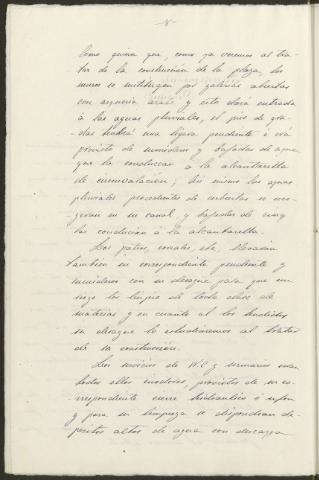 -8-
Como quiera que, como ya veremos al tra-
tar de la construcción de la plaza, los
muros se sustituyen por galerías abiertas
con arquería árabe y esto dará entrada
á las aguas pluviales, el piso de gra-
das tendrá una ligera pendiente é irá
provisto de sumideros y bajadas de agua
que la conduzcan á la alcantarilla
de circunvalación; así mismo las aguas
pluviales procedentes de cubiertas se reco-
gerán en su canal y bajadas de zinc
las conducirán á la alcantarilla.
Los patios, corrales, etc, llevarán
también su correspondiente pendiente y
sumideros con su desague para que un
riego los limpie de toda clase de
materias y en cuanto al los
su desague lo estudiaremos al tratar
de su construcción.
Los servicios de W.C. y urinarios serán
todos ellos inodoros, provistos de su co-
rrespondiente cierre hidráulico ó sifon
y para su limpieza se dispondrán de-
pósitos altos de agua con descarga